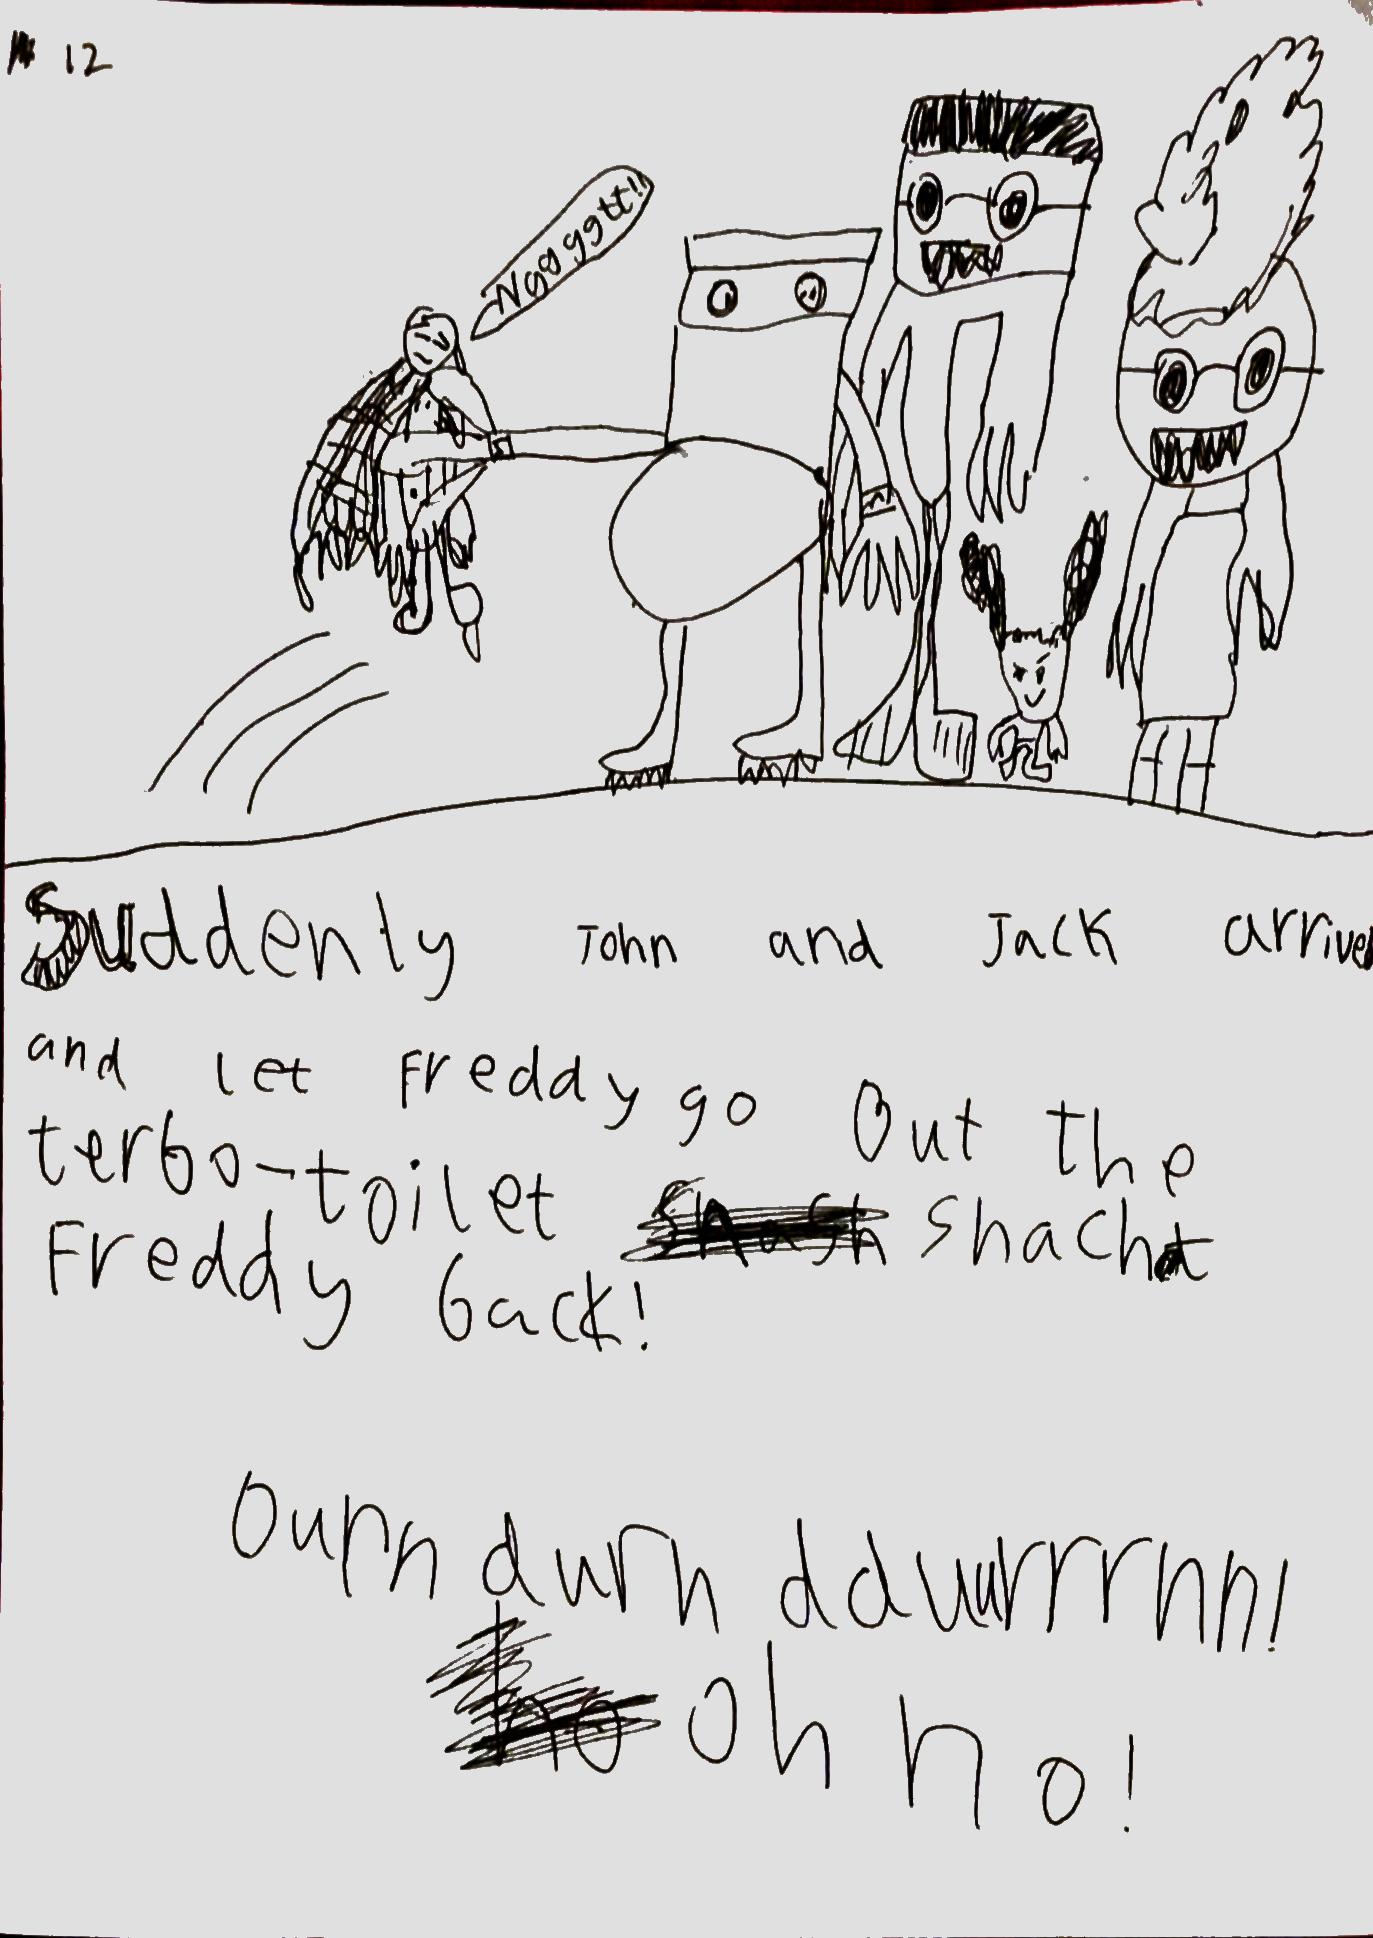 12
Suddenly John and Jack arrived
and let Freddy go Out the
terbo-toilet shacht
Freddy back!
durn durn dduuurrrrnnn!
oh no!